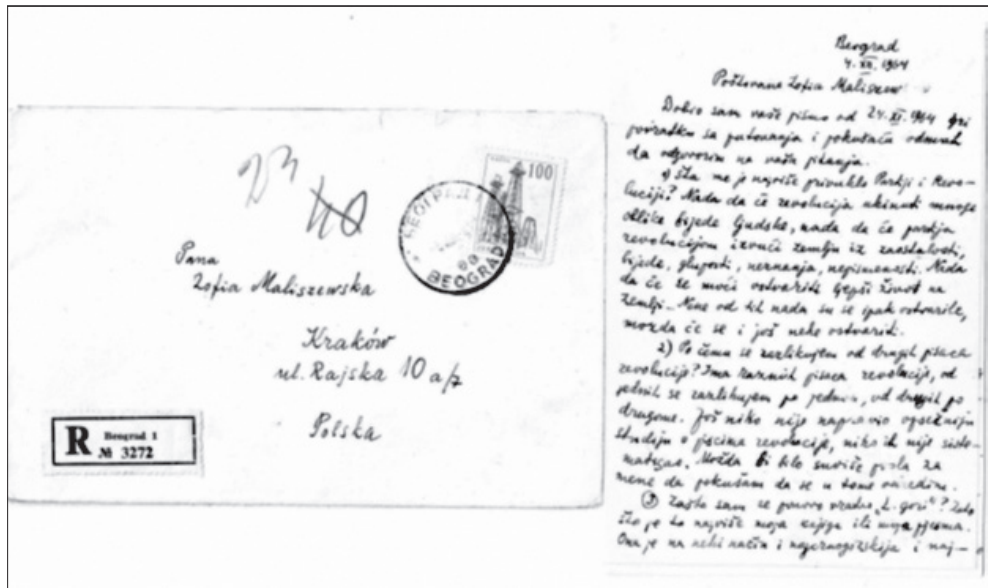 100
BEOGRAD
Pana
Zofia Maliszewska
Kraków
ul. Rajska 10 a/7
Polska
R Beograd 1
№ 3272
Beograd
4. XII. 1964
Poštovana Zofia Maliszew
Dobio sam vaše pismo od 24. XI. 1964 pri
povratku sa putovanja i pokušaću odmah
da odgovorim na vaša pitanja.
1) Šta me je najviše privuklo Partiji i Revo-
luciji? Nada da će revolucija ukinuti mnoge
oblike bijede ljudske, nada da će partija
revolucijom izvući zemlju iz zaostalosti,
bijede, gluposti, neznanja, nepismenosti. Nada
da će se moći ostvariti ljepši život na
zemlji. Neke od tih nada su se ipak ostvarile,
možda će se i još neke ostvariti.
2) Po čemu se razlikujem od drugih pisaca
revolucije? Ima raznih pisaca revolucije, od
jednih se razlikujem po jednom, od drugih po
drugome. Još niko nije napravio
studiju o piscima revolucije, niko ih nije siste-
matizao. Možda bi bilo suviše posla za
mene da pokušam da se u tome
3) Zašto sam se ponovo vraćao „L. gori"? Zato
što je to najviše moja knjiga ili moja pjesma.
Ona je na neki način i najcrnogorskija i naj-